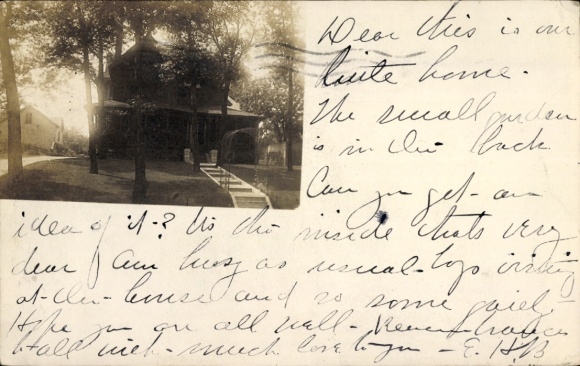 Dear this is our
little home.
The small garden
is in the back
Can you get an
idea of it? Its the inside thats very
dear. Am busy as usual
at the house and so some
Hope you are all well - Remembrances
to all with much love to you - E. H. B